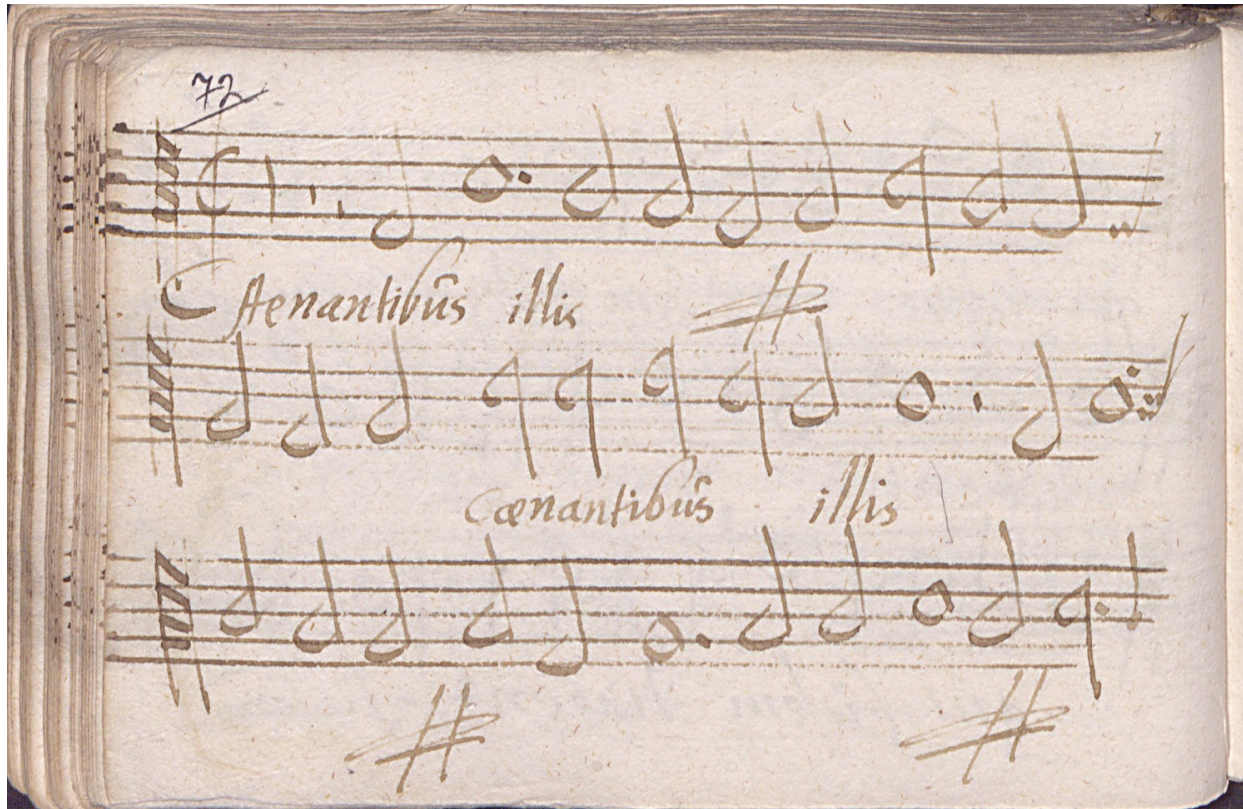 72
Cænantibus illis
cænantibus illis